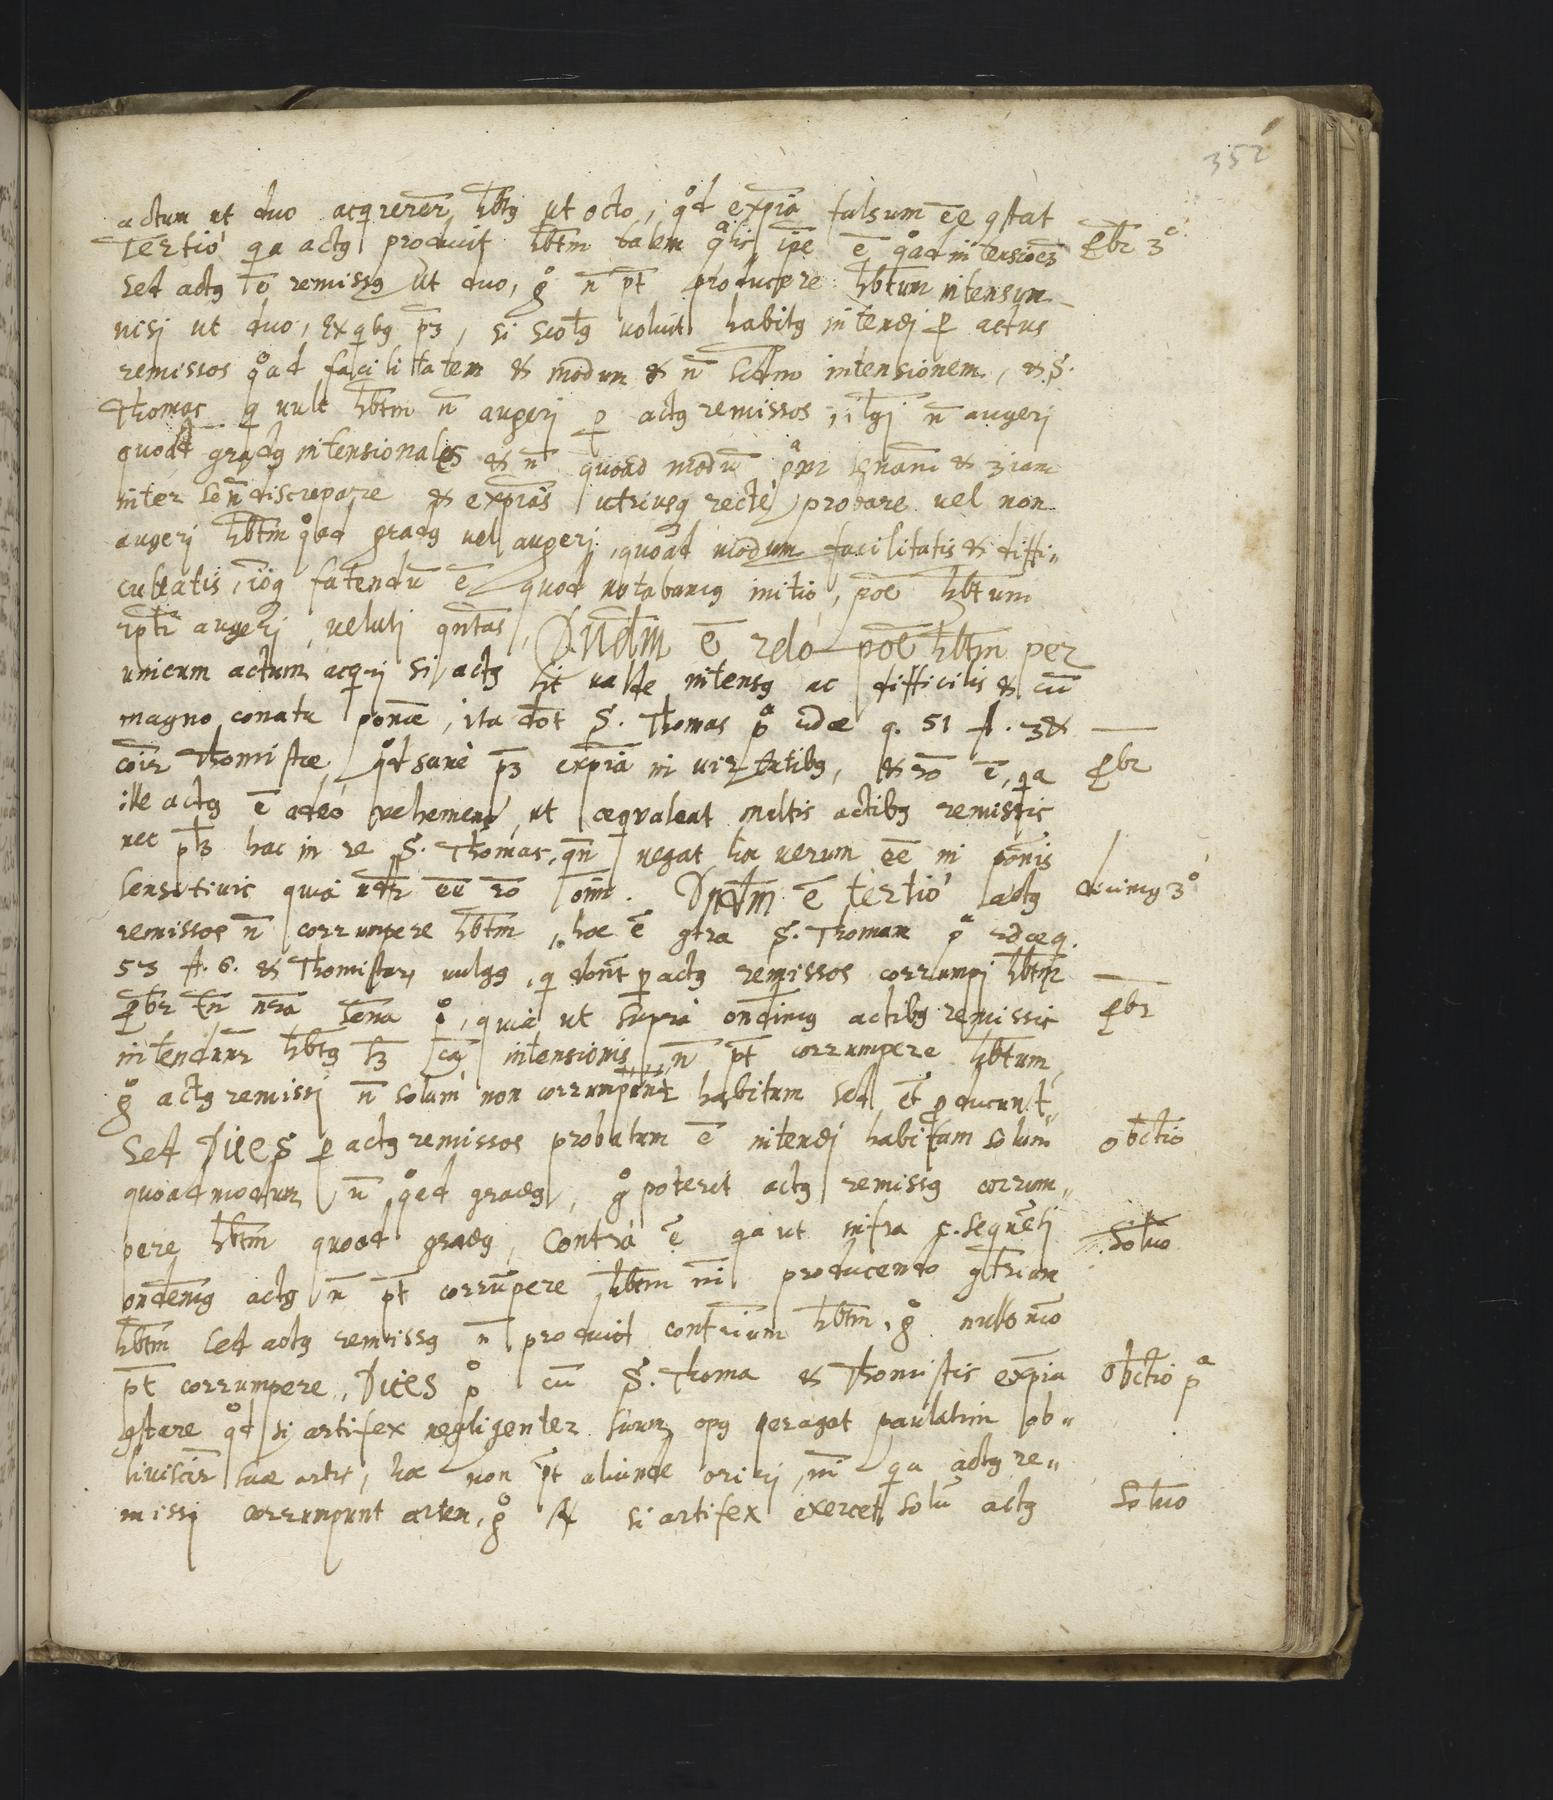 352
actum ut duo acqrerer hbtq ut octo, qd expia falsum ee qstat
Tertio qa actq producit hbtm talem qlis ipe e qad intensioez pbr 3º
sed actq e remissq ut duo, g n pt producere hbtum intensum
nisi ut duo, ex qbq p3, si scotq voluit habitq intendi p actus
remissos qad facilitatem & modum & n scdm intensionem, & S.
Thomas q vult hbtm n augeri p actq remissos, n augeri
quoad gradq intensionales & n quoad modu
inter se n discrepare & expias utriusq recte probare vel non
augeri hbtm qad gradq vel augeri quoad modum facilitatis & diffi„
cultatis, fatendu e quod notabamq initio, poe hbtum
augeri, veluti qntas, Dndm e 2do poe hbtm per
unicum actum acqri si actq sit valde intensq ac difficilis & cu
magno conatu ponae, ita dot S. Thomas pª 2dae q. 51 A. 3 &
coiter Thomistae, qd sane p3 expia in virtutibq, & ro e, qa pbr
ille actq e adeo vehemens, ut aequaleat multis actibq remissis
nec hac in re S. Thomas, qn negat hoc verum ee in
sensitivis quia ee ro . Dndm e tertio actq dicimq 3º
remissos n corrumpere hbtm, hoc e qtra S. Thomam pª 2dae q.
53 A. 6. & Thomistas vulgq, q dont p actq remissos corrumpi hbtm
pbr tn nra sena pº, quia ut supra ondimq actibq remissis pbr
intenduntr hbtq intensionis, n pt corrumpere hbtum,
g actq remissi n solum non corrumpunt habitum sed et producunt
Sed Dices p actq remissos probatum e intendi habitum solum obctio
quoad modum n qad gradq, g poterit actq remissq corrum„
pere hbtm quoad gradq, Contra e qa ut infra q. sequeti Soluo
ondemq actq n pt corrumpere hbtm ni producendo qtrium
hbtm sed actq remissq n producit contrium hbtm, g nullo mo
pt corrumpere, Dices pº cu S. Thoma & Thomistis expia Obctio pª
qstare qd si artifex negligenter suum opq peragat paulatim ob„
liviscir suae artis, hoc non pt aliunde oriri, ni qa actq re„
missi corrumpunt artem, g R si artifex exercet solu actq Soluo